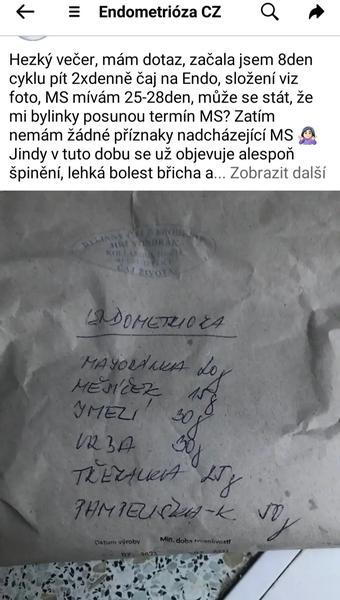 Endometrióza CZ
Hezký večer, mám dotaz, začala jsem 8den
cyklu pít 2xdenně čaj na Endo, složení viz
foto, MS mívám 25-28den, může se stát, že
mi bylinky posunou termín MS? Zatím
nemám žádné příznaky nadcházející MS 🤷🏻‍♀️
Jindy v tuto dobu se už objevuje alespoň
špinění, lehká bolest břicha a... Zobrazit další
JIŘÍ
ČAJ ŽIVOTA
ENDOMETRIOZA
MAJORÁNKA 20g
MĚSÍČEK 15g
JMELÍ 30g
VRBA 30g
TŘEZALKA 25g
PAMPELIŠKA-K. 50g
Datum výroby Min. doba trvanlivosti